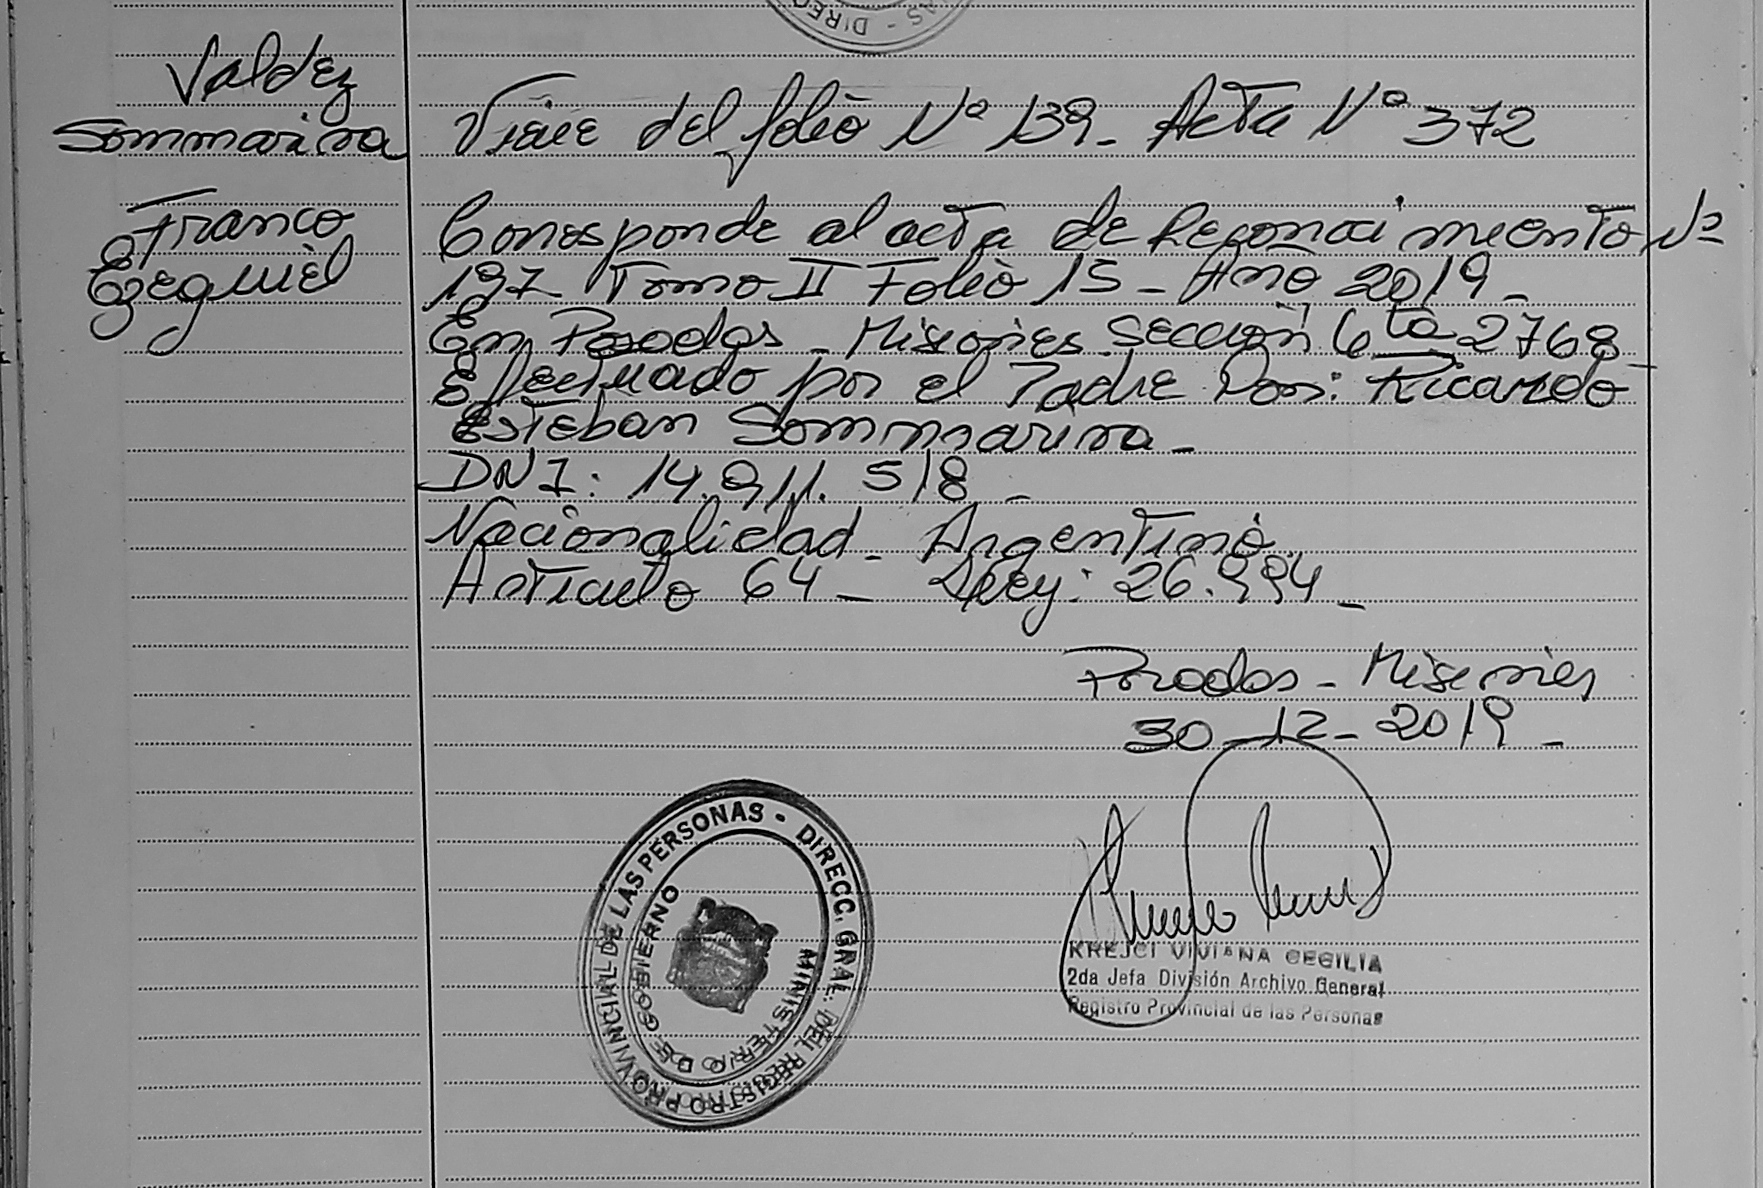 Valdez
Sommariva
Franco
Ezequiel
Viene del folio Nº 139- Acta Nº 372
Corresponde al acta de Reconocimiento Nº
197 Tomo II Folio 15 - Año 2019 -
En Posadas - Misiones Sección 6ta 2768
Efectuado por el Padre Don: Ricardo
Esteban Sommariva -
DNI: 14.911.518 -
Nacionalidad - Argentino
Articulo 64 - Ley: 26.994 -
Posadas - Misiones
30-12-2019 -
KREJCI VIVIANA CECILIA
2da Jefa División Archivo General
Registro Provincial de las Personas
DIRECC. GRAL. DEL REGISTRO PROVINCIAL DE LAS PERSONAS -
MINISTERIO DE GOBIERNO
AS - DIREC